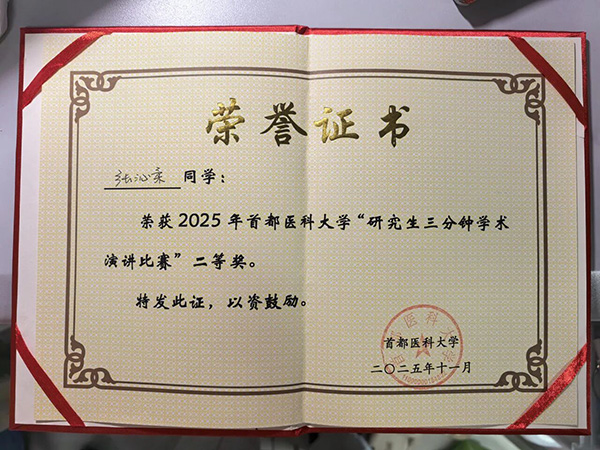 荣誉证书
张沁蓉 同学：
荣获2025年首都医科大学“研究生三分钟学术
演讲比赛”二等奖。
特发此证，以资鼓励。
首都医科大学
二〇二五年十一月
首都医科大学